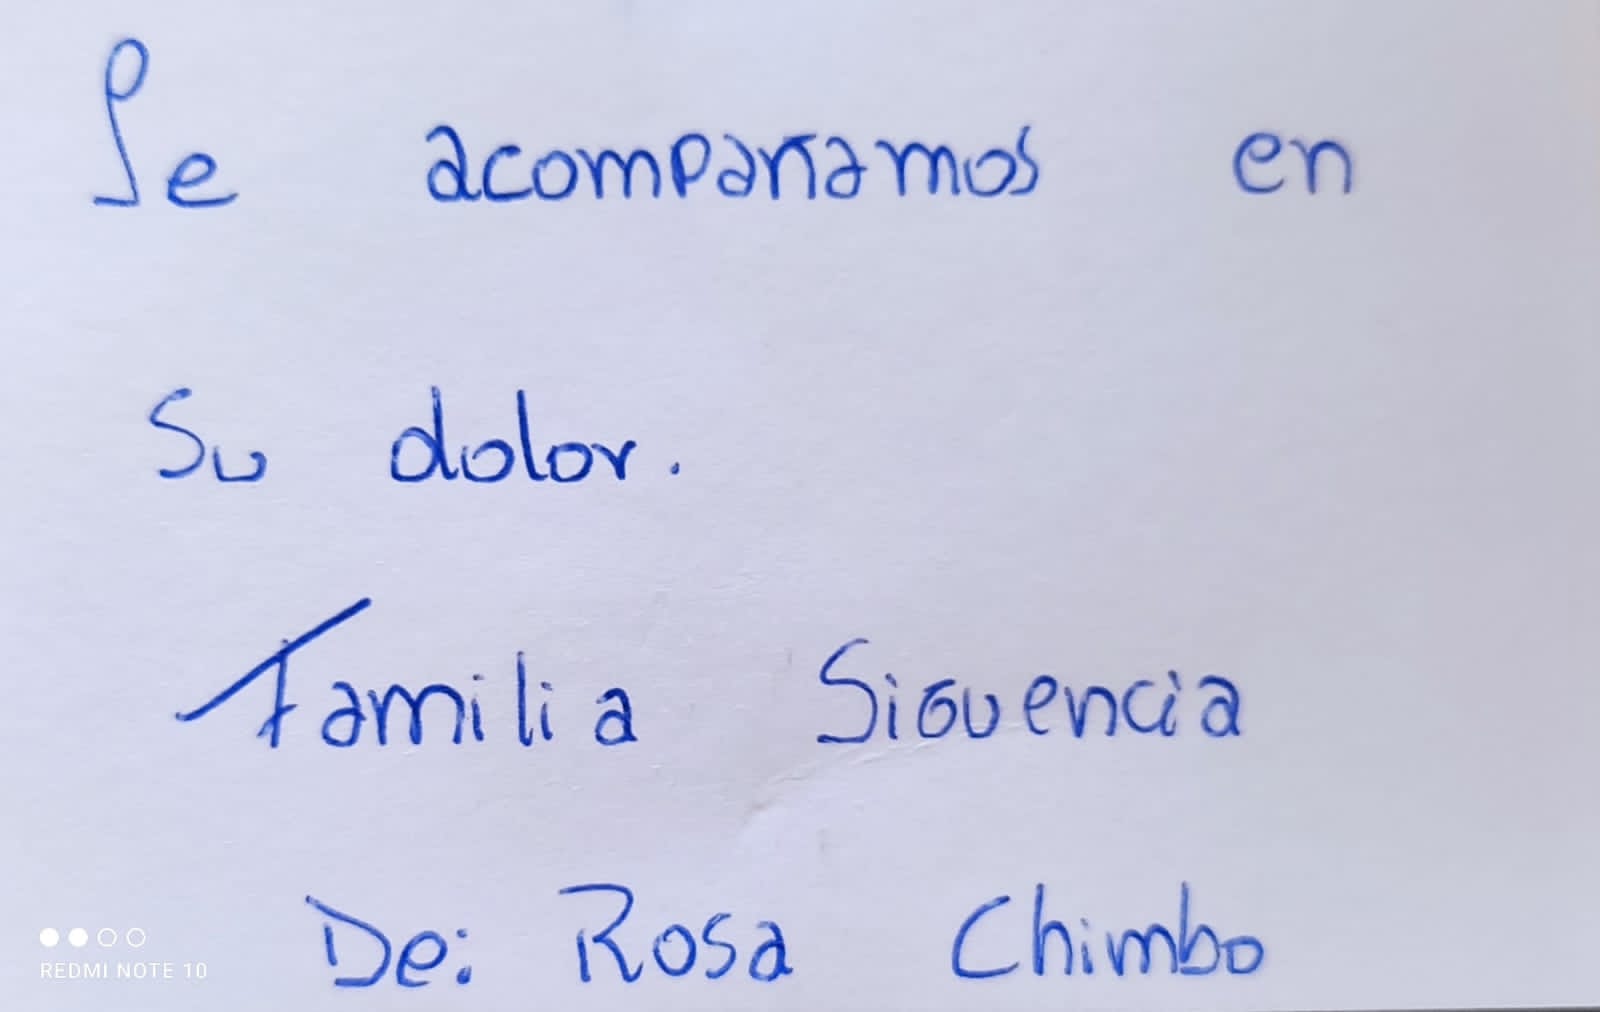 Se acompañamos en
Su dolor.
Familia Siguencia
De: Rosa Chimbo
REDMI NOTE 10